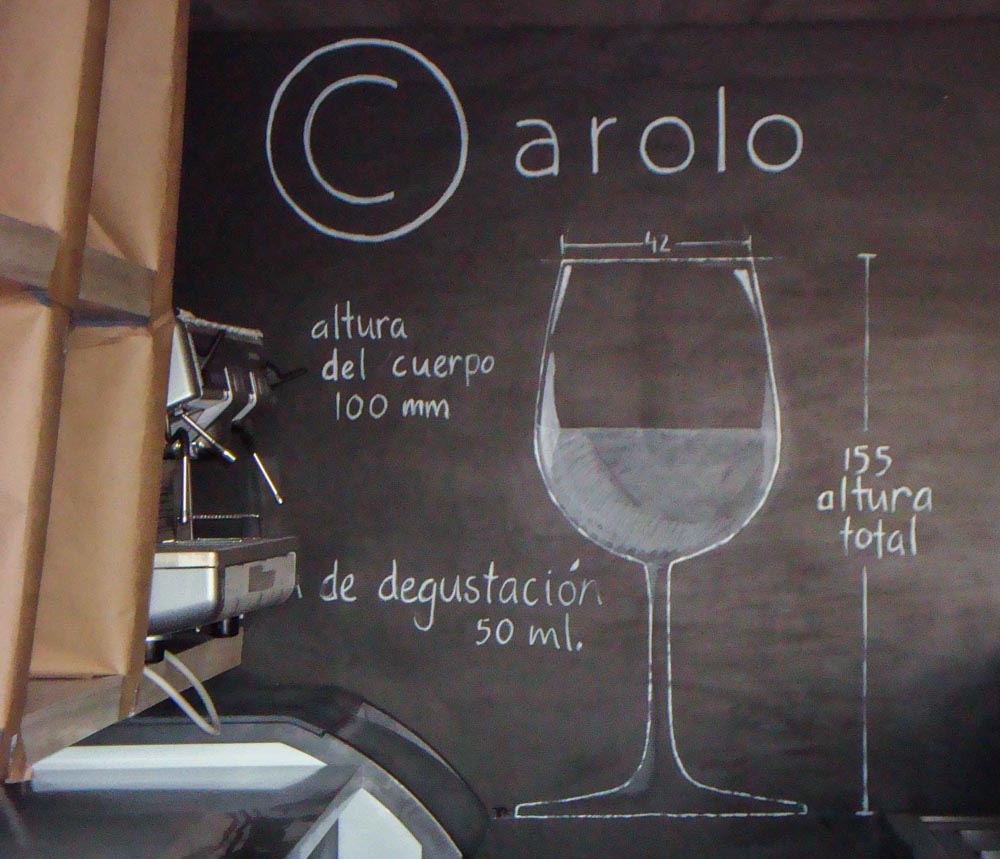 C arolo
42
altura
del cuerpo
100 mm
155
altura
total
de degustación
50 ml.